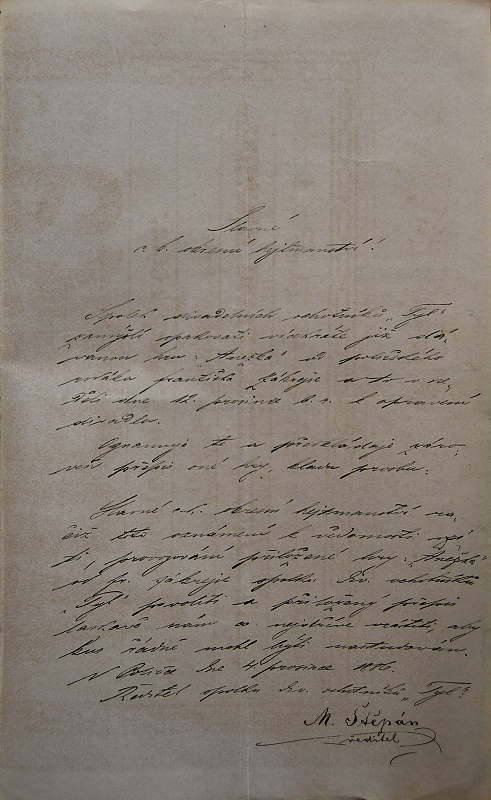 Slavné
c. k. okresní hejtmanství!
Spolek divadelních ochotníků „Tyl“
zamýšlí opakovati několikráte již
hru: „Anežka“ od
rolníka Františka Zákrejse a to v ne-
děli dne 12. prosince t. r. k opravení
divadla.
Oznamuje to a předkládaje záro-
veň přepis oné hry, klade prosbu:
Slavné c. k. okresní hejtmanství ra-
čiž toto oznámení k vědomosti vzí-
ti, provozování přiložené hry: „Anežka“
od Fr. Zákrejse spolku div. ochotníků
„Tyl“ povoliti a přiložený přepis
laskavě nám co nejdříve vrátiti, aby
kus řádně mohl býti nastudován.
V Poličce dne 4. prosince 1886.
Ředitel spolku div. ochotníků „Tyl“:
M. Štěpán
ředitel